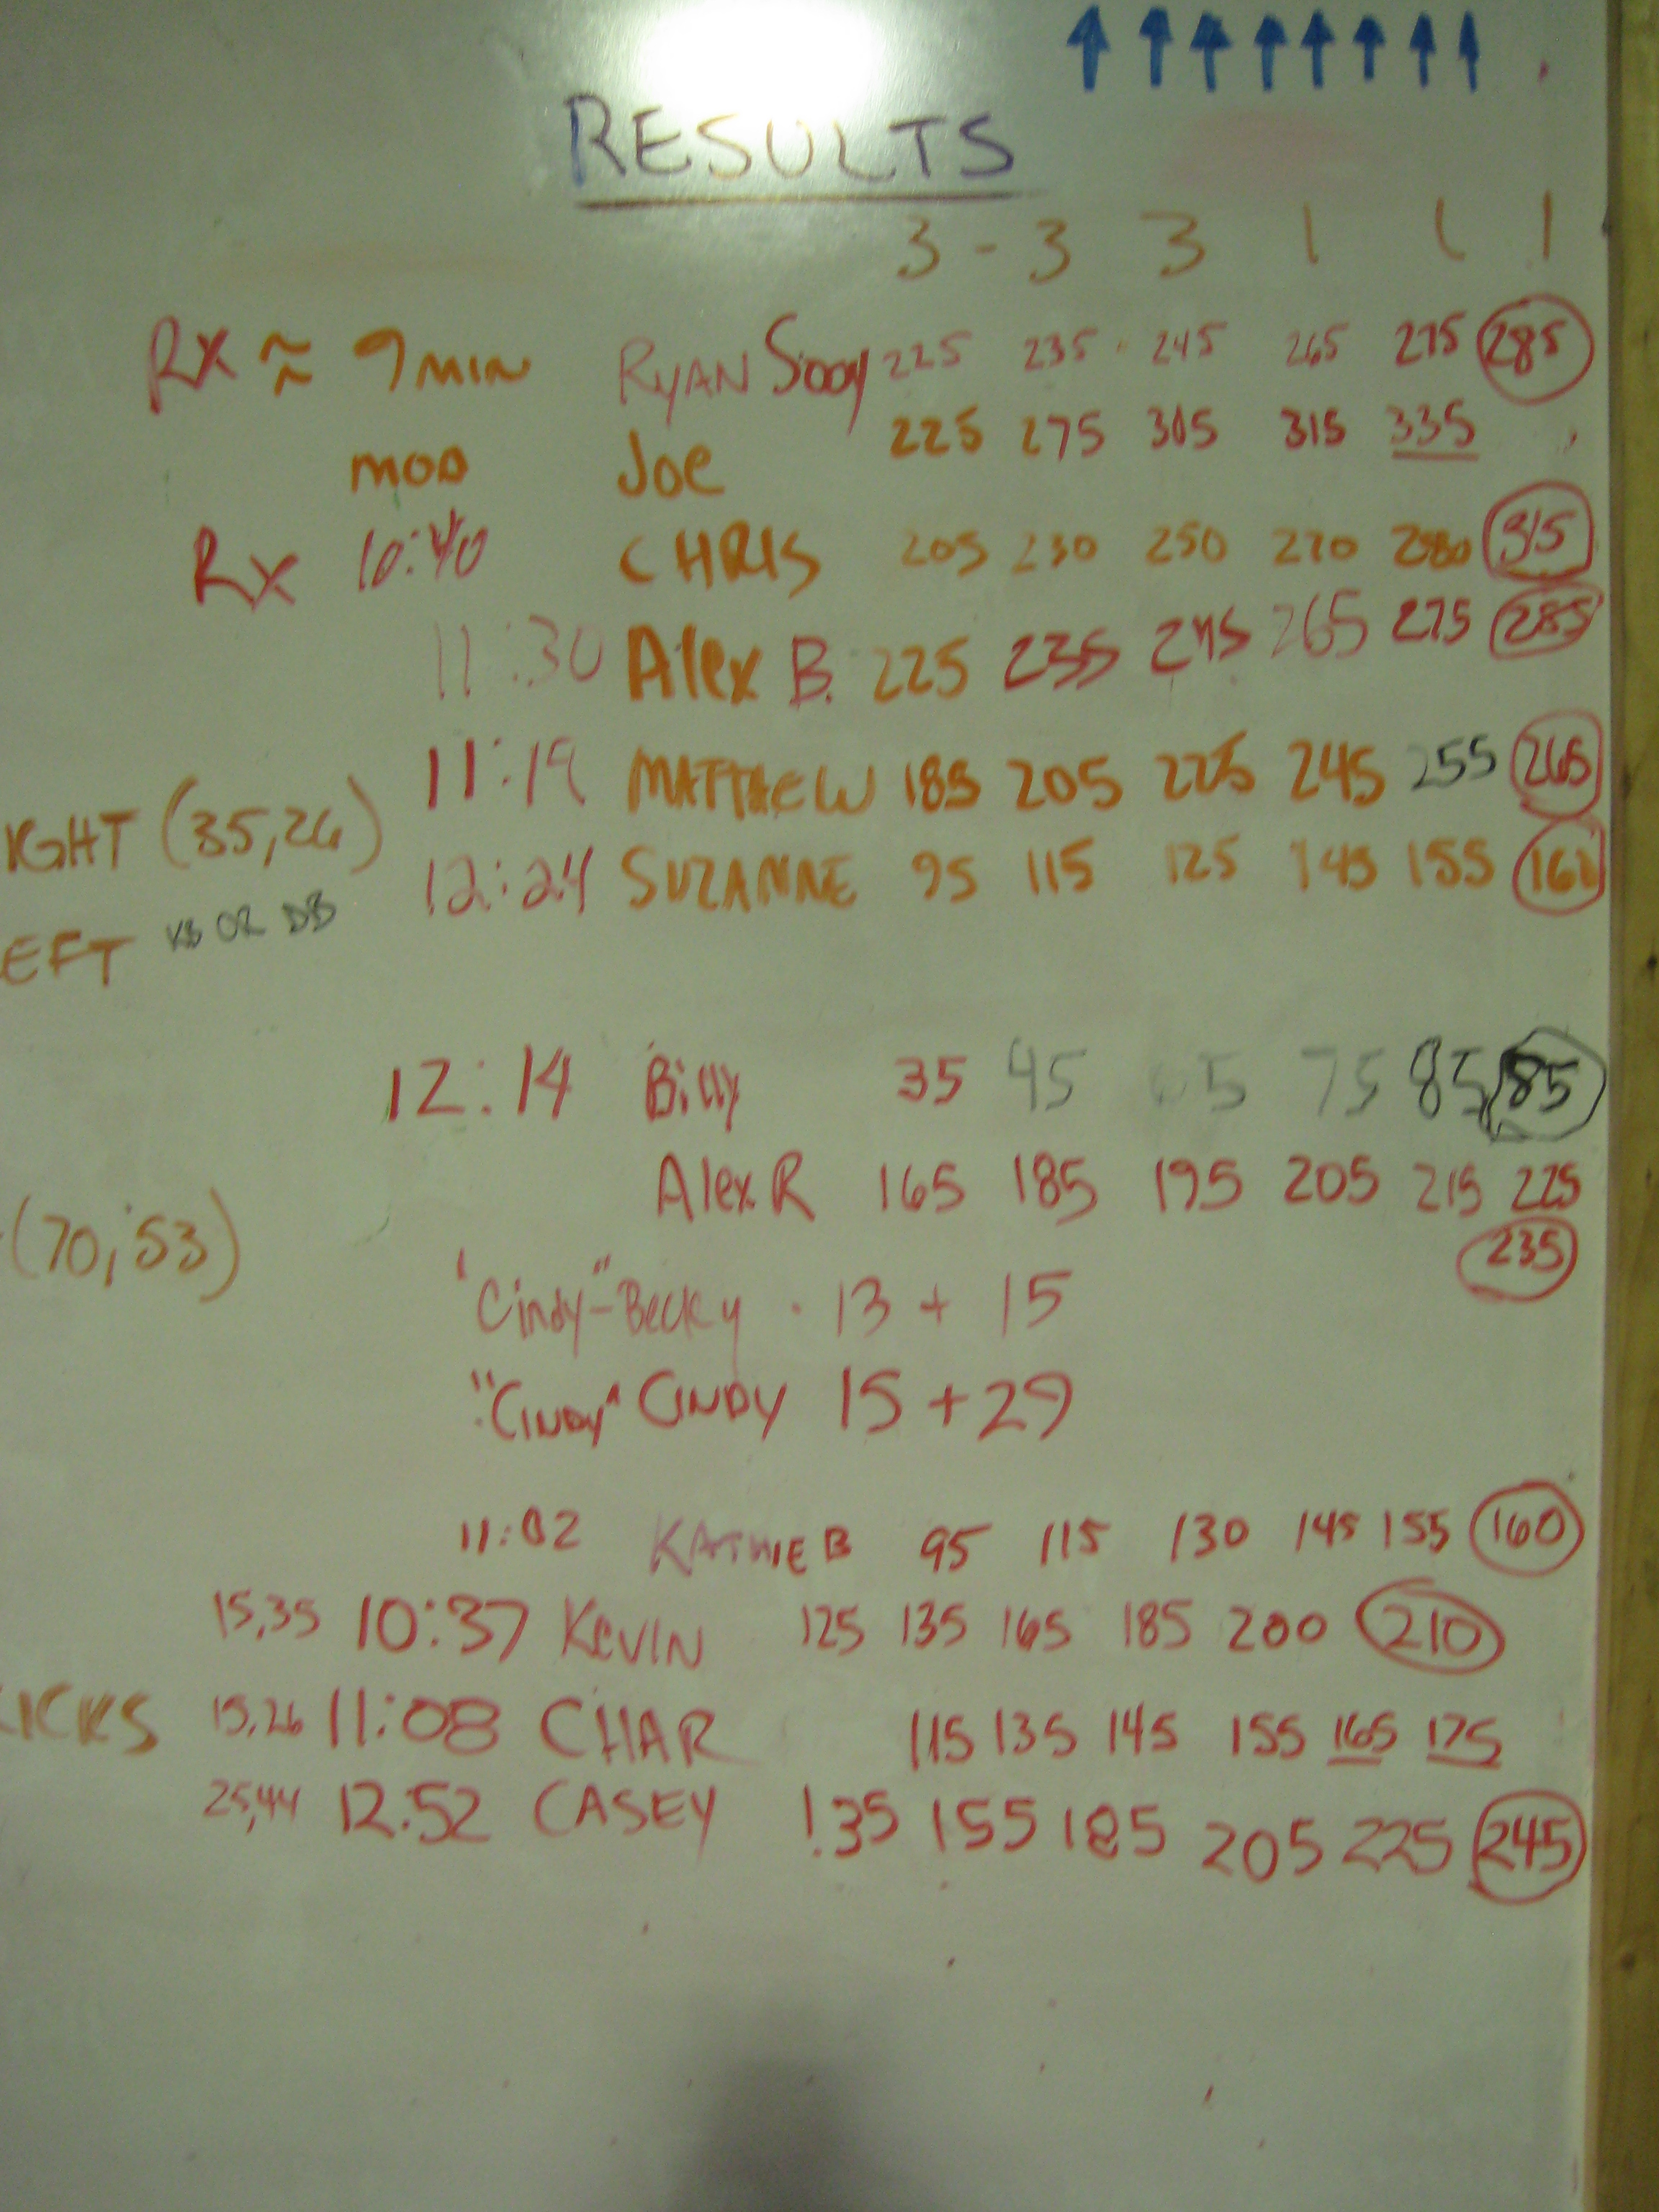 RESULTS
3 - 3 3 1 1 1
RX ≈ 9 MIN RYAN Sooy 225 235 245 265 275 285
MOD Joe 225 275 305 315 335
Rx 10:40 CHRIS 205 230 250 270 280 315
11:30 Alex B. 225 235 245 265 275 285
11:19 MATTHEW 185 205 225 245 255 265
IGHT (35,26)
12:24 SUZANNE 95 115 125 145 155
EFT KB OR DB
12:14 Billy 35 45 65 75 85 85
Alex R 165 185 195 205 215 225
(70,53) 235
"Cindy"-Becky - 13 + 15
"CINDY" CINDY 15 + 29
11:02 KATHIE B 95 115 130 145 155 160
15,35 10:37 KEVIN 125 135 165 185 200 210
ICKS 15,26 11:08 CHAR 115 135 145 155 165 175
25,44 12:52 CASEY 135 155 185 205 225 245